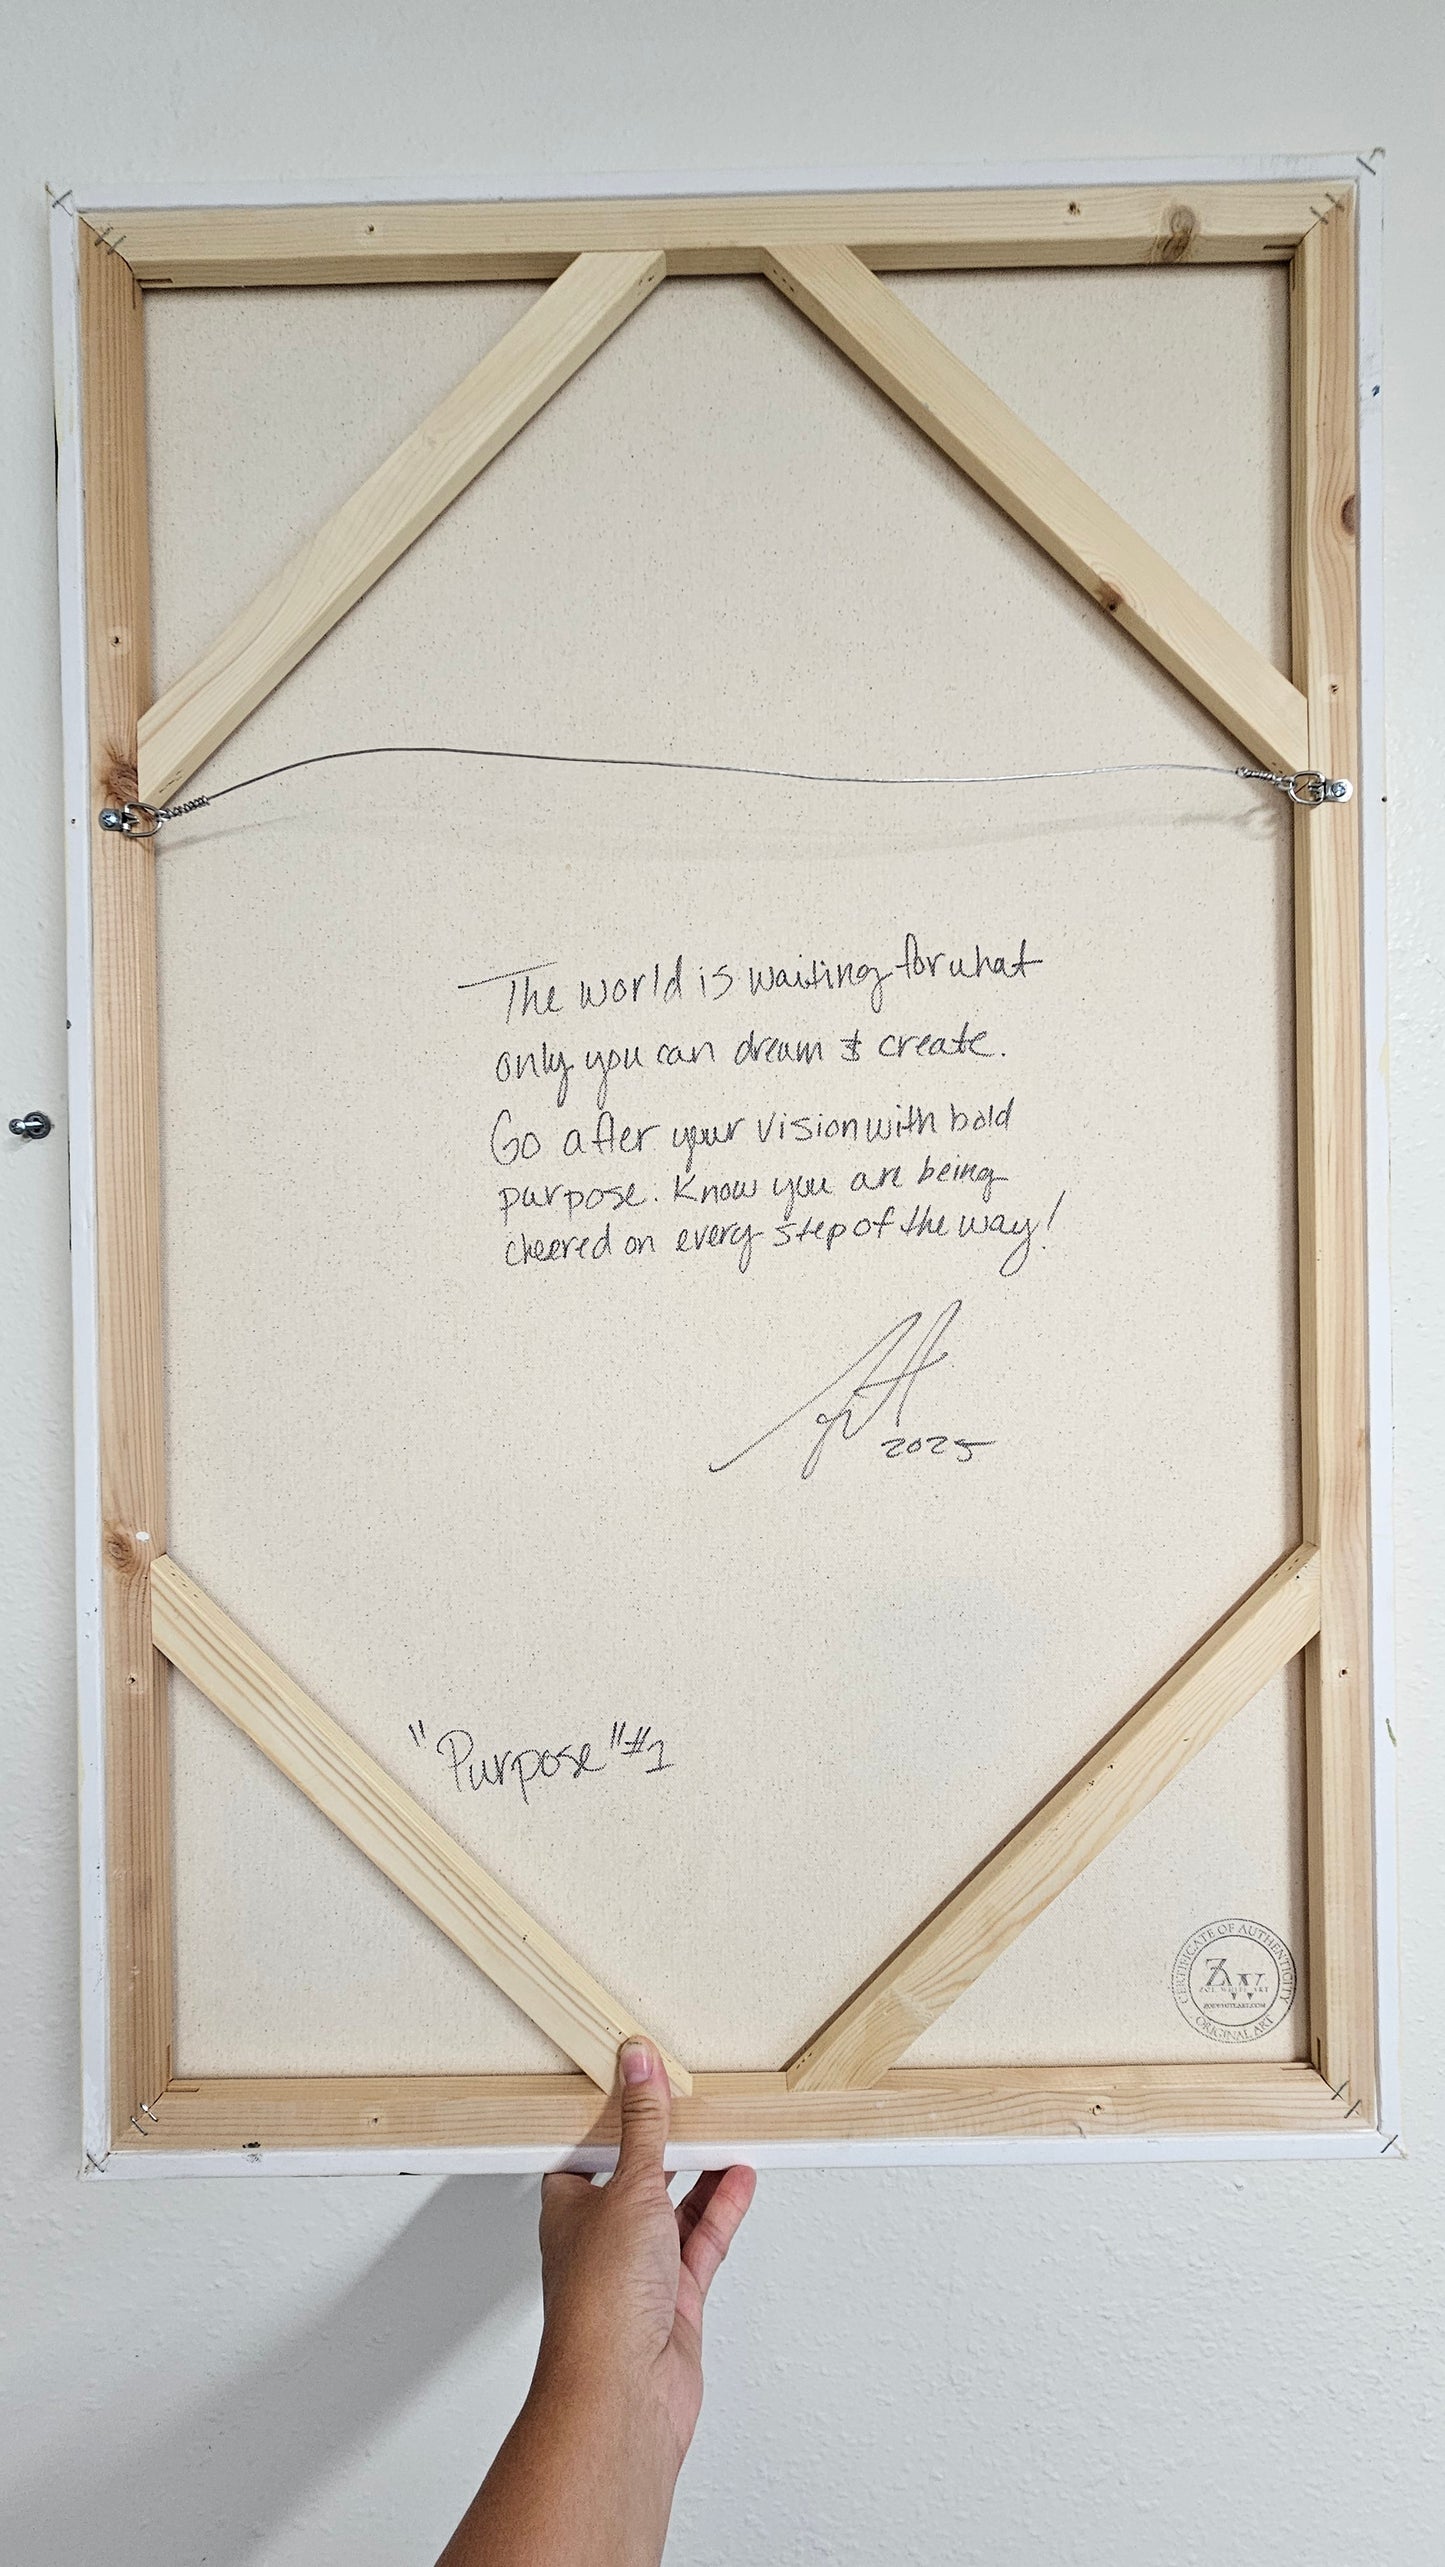 The world is waiting for what
only you can dream & create.
Go after your vision with bold
purpose. Know you are being
cheered on every step of the way!
2025
"Purpose" #1
CERTIFICATE OF AUTHENTICITY
ZW
ZOE WHITE ART
ZOEWHITEART.COM
ORIGINAL ART